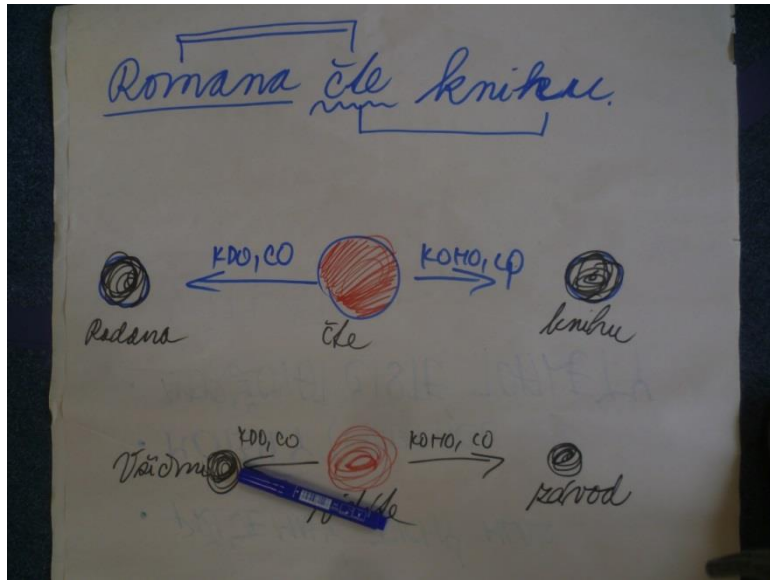 Romana čte knihu.
KDO, CO KOHO, CO
Radana čte knihu
KDO, CO KOHO, CO
Všichni závod